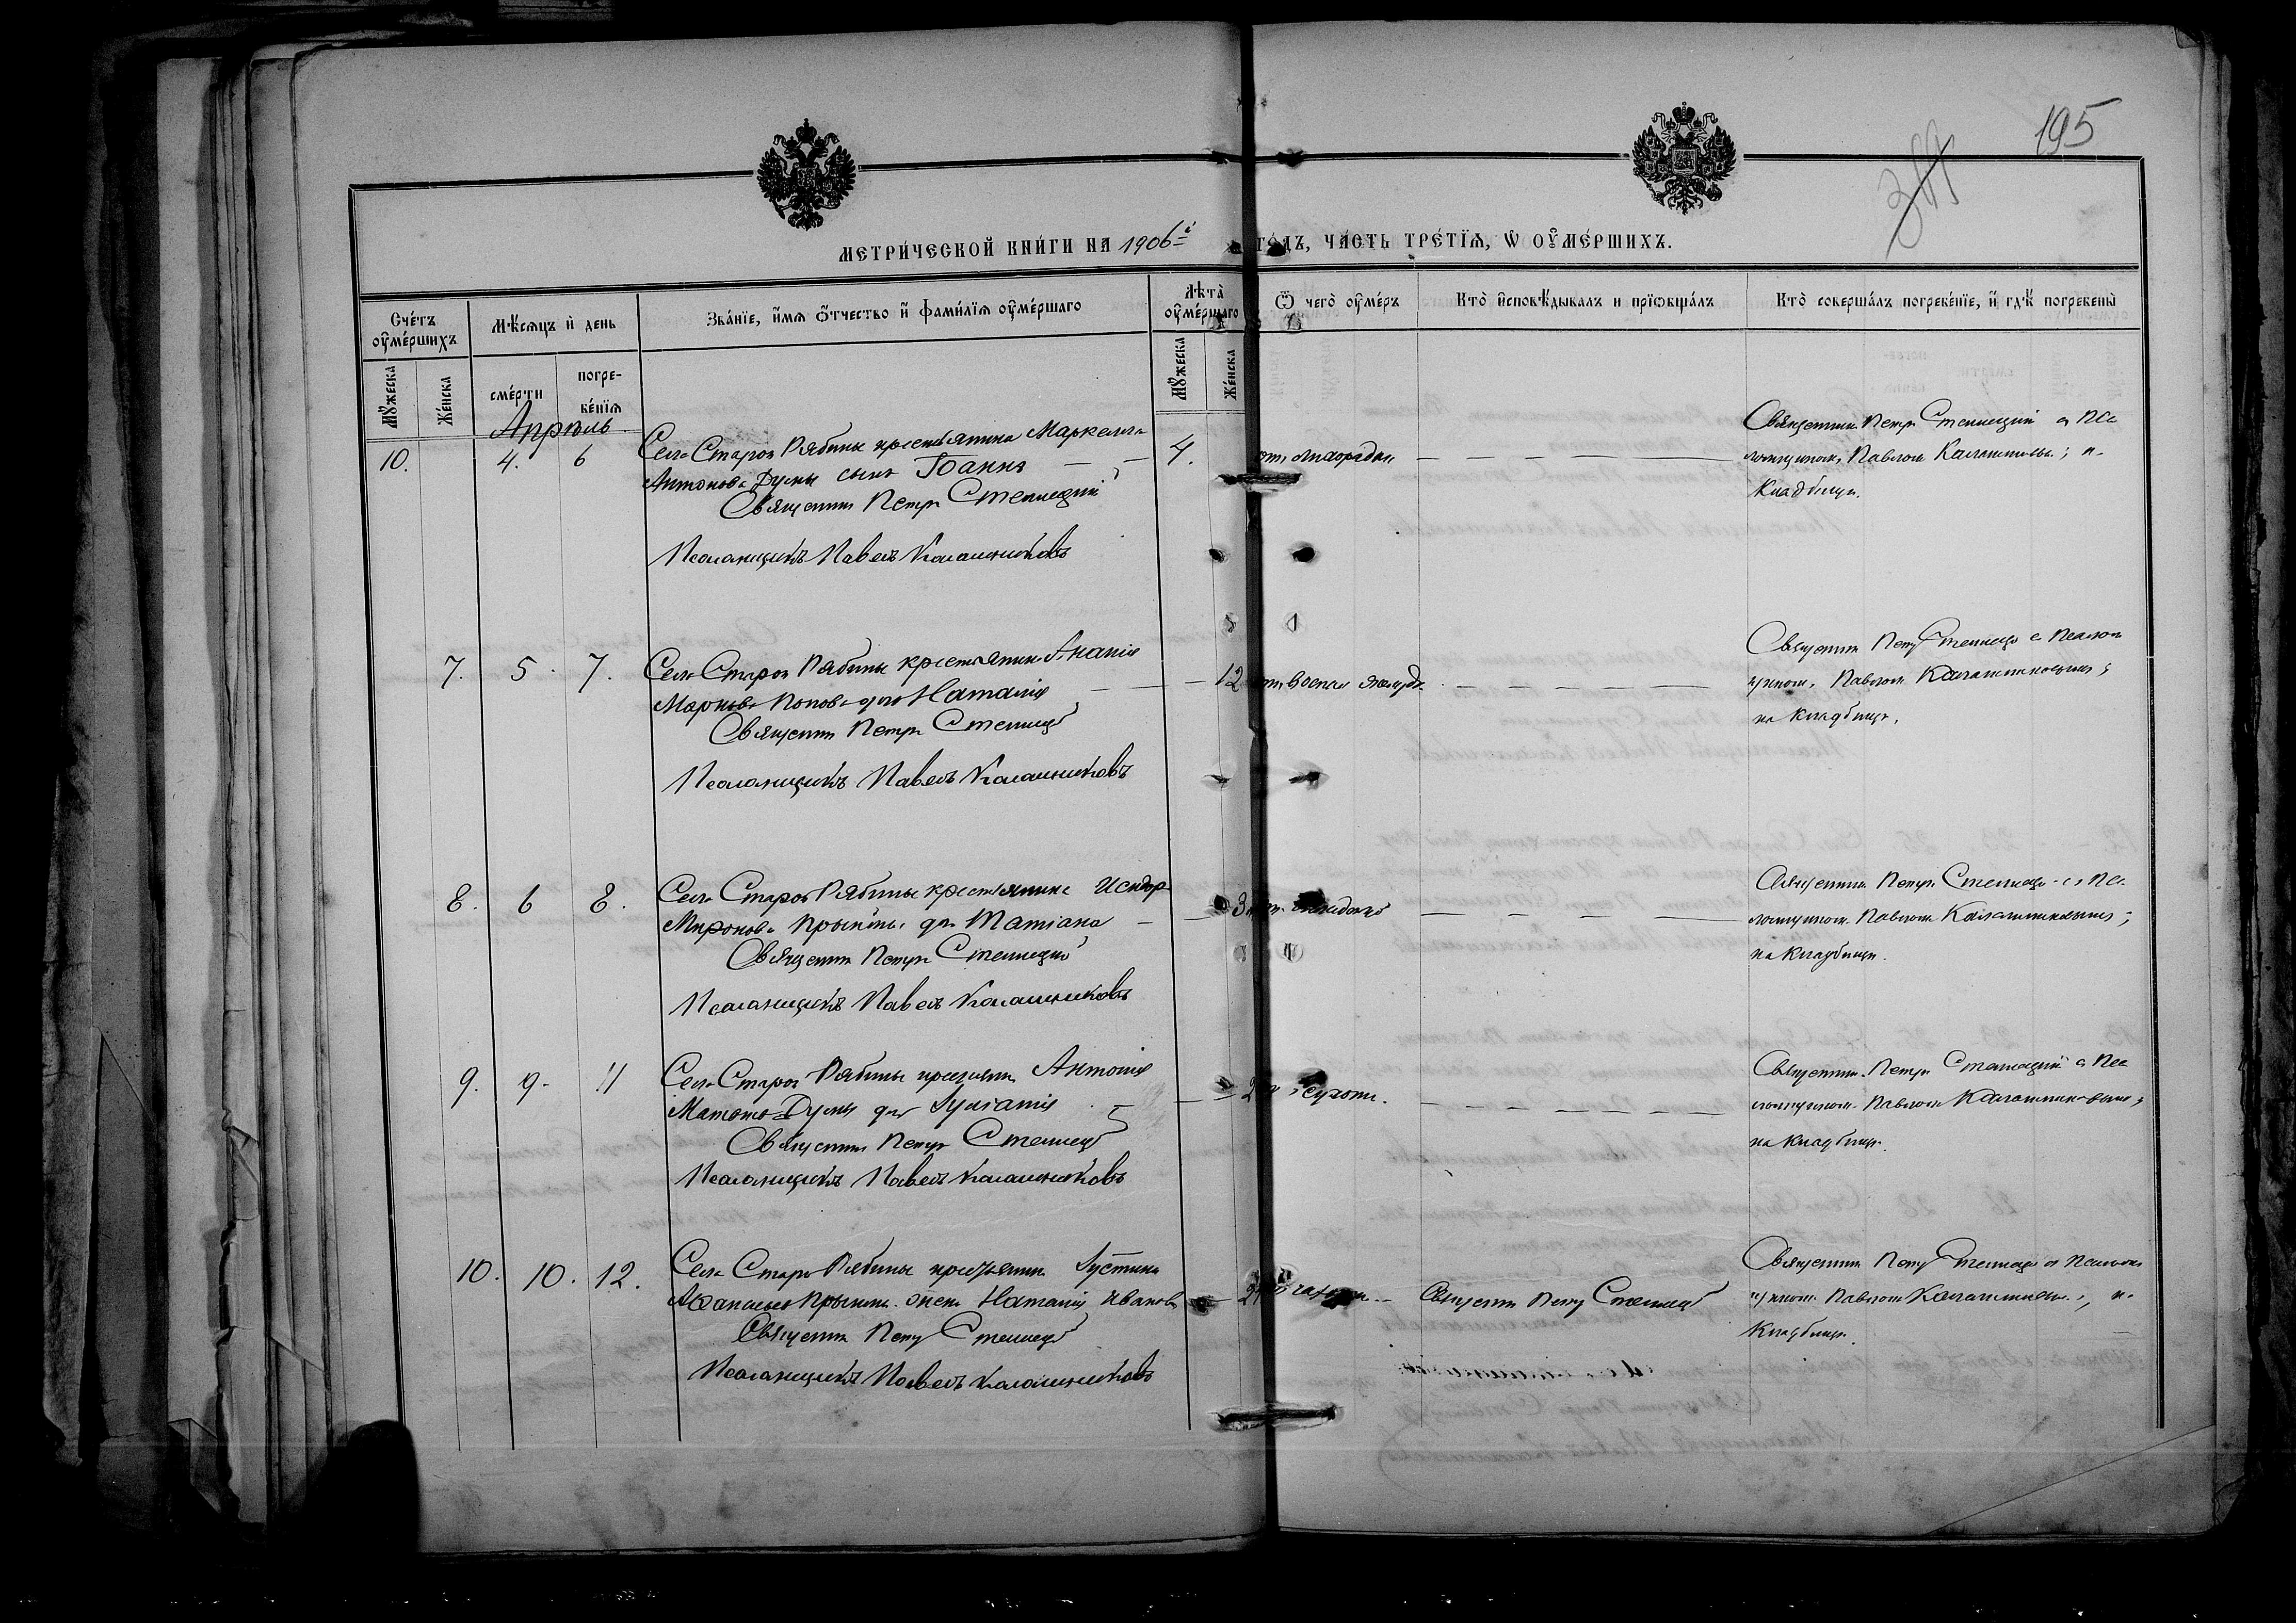 195
МЕТРИ́ЧЕСКОЙ КНИ́ГИ НА 1906й ГО́ДЪ, ЧА́СТЬ ТРЕ́ТІѦ, Ѡ ОУ҆МЕ́РШИХЪ.
Сче́тъ оу҆ме́ршихъ
Мѣ́сѧцъ и҆ день
Зва́нїе, и҆́мѧ о҆́тчество и҆ фами́лїѧ оу҆ме́ршаго
Лѣта̀ оу҆ме́ршаго
Ѿ чегѡ̀ оу҆ме́ръ
Кто̀ и҆сповѣ́дывалъ и прїѡбща́лъ
Кто̀ соверша́лъ погребе́нїе, и҆ гдѣ̀ погребены̀
Мꙋ́жеска
Же́нска
сме́рти
погребе́нїѧ
Мꙋ́жеска
Же́нска
Апрѣль
10. 4. 6
Села Старой Рябины крестьянина Маркелла
Антонова Думы сынъ Іоаннъ
Священникъ Петръ Стеллецкій
Псаломщикъ Павелъ Калашниковъ
4.
отъ лихорадки
Священникъ Петръ Стеллецкій съ Пса
ломщикомъ Павломъ Калашниковымъ; на
Кладбищѣ.
7. 5. 7.
Села Старой Рябины крестьянина Ананія
Маркова Попова дочь Наталія
Священникъ Петръ Стеллецкій
Псаломщикъ Павелъ Калашниковъ
12
Священникъ Петръ Стеллецкій съ Псалом
щикомъ Павломъ Калашниковымъ;
на Кладбищѣ.
8. 6 8.
Села Старой Рябины крестьянина Исидора
Миронова дочь Татіана
Священникъ Петръ Стеллецкій
Псаломщикъ Павелъ Калашниковъ
3
Священникъ Петръ Стеллецкій съ Пса
ломщикомъ Павломъ Калашниковымъ;
на Кладбищѣ.
9. 9. 11
Села Старой Рябины крестьянина Антонія
Думы дочь Іуліанія
Священникъ Петръ Стеллецкій
Псаломщикъ Павелъ Калашниковъ
2
Священникъ Петръ Стеллецкій съ Пса
ломщикомъ Павломъ Калашниковымъ;
на Кладбищѣ.
10. 10. 12.
Села Старой Рябины крестьянина Іустина
жена Наталія Иванова
Священникъ Петръ Стеллецкій
Псаломщикъ Павелъ Калашниковъ
Священникъ Петръ Стеллецкій
Священникъ Петръ Стеллецкій съ Псалом
щикомъ Павломъ Калашниковымъ; на
Кладбищѣ.